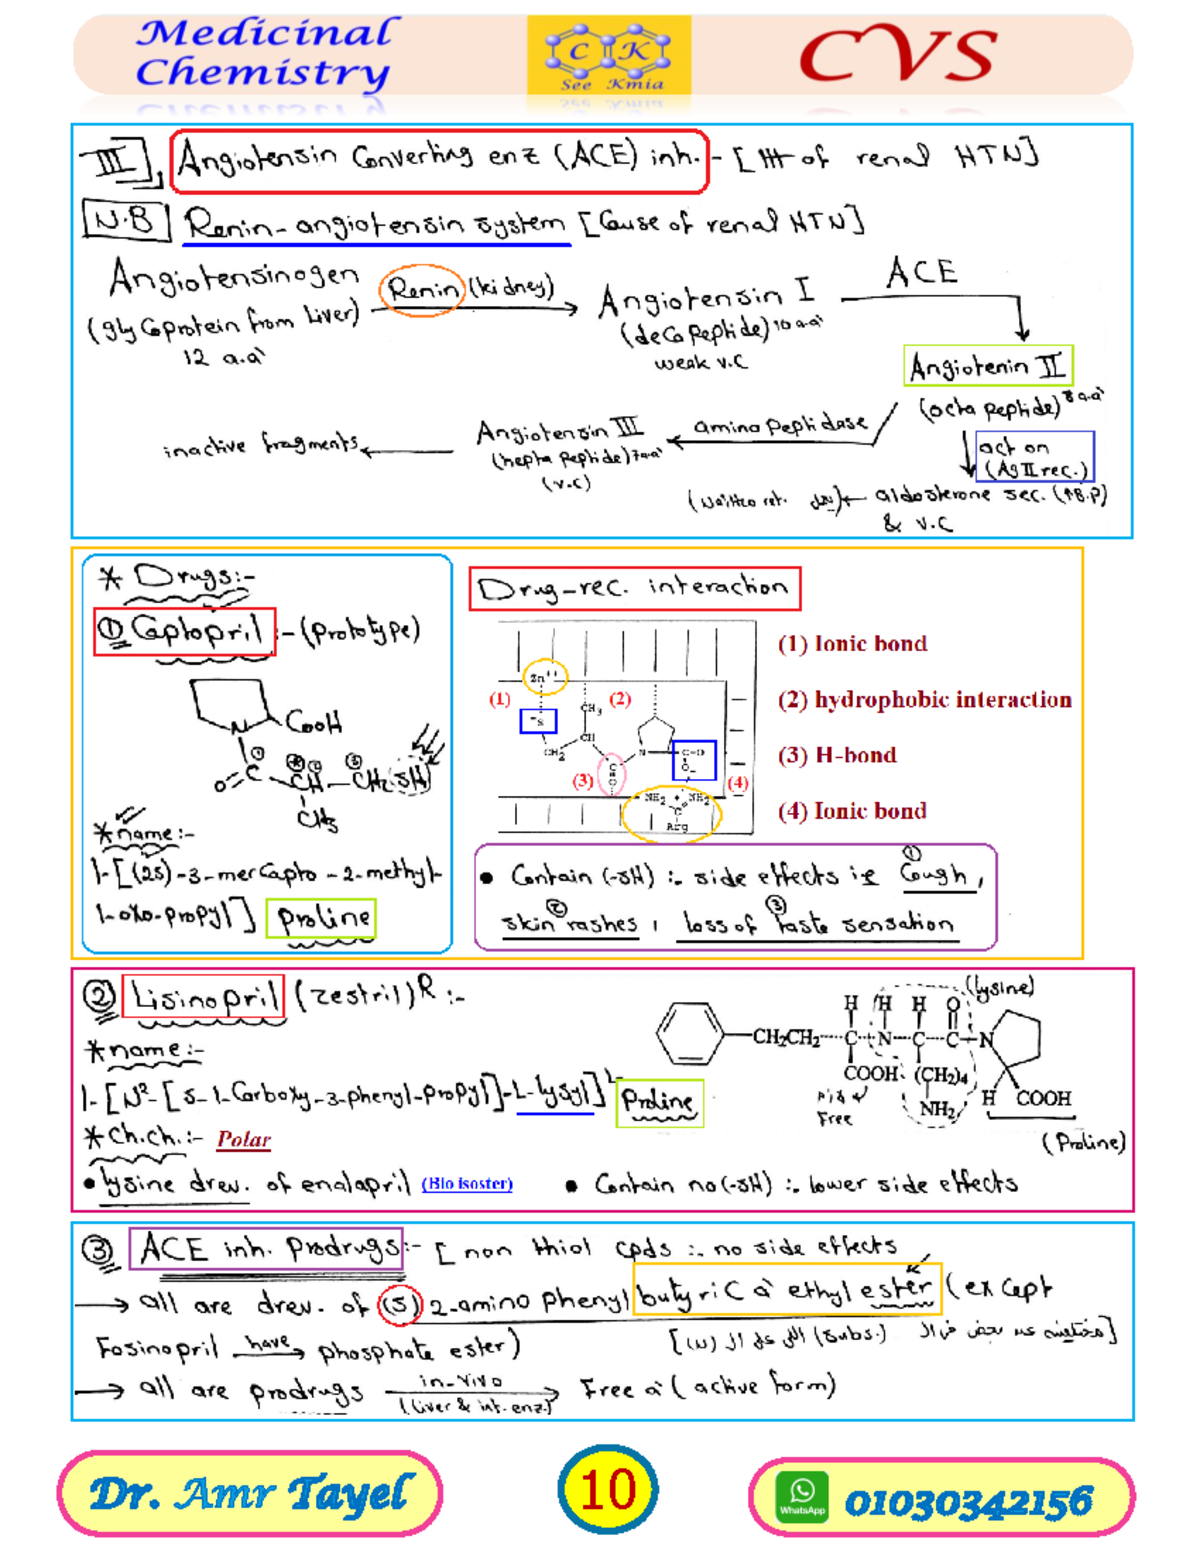 Medicinal
Chemistry
C K
See Kmia
CVS
III, Angiotensin Converting enz (ACE) inh. - [ttt of renal HTN]
N.B Renin-angiotensin system [Cause of renal HTN]
Angiotensinogen
(glycoprotein from Liver)
12 a.a
Renin (kidney)
Angiotensin I
(decapeptide) 10 a.a
weak v.c
ACE
Angiotenin II
(octa peptide) 8 a.a
act on
(AgII rec.)
aldosterone sec. (↑B.P)
& v.c
amino peptidase
Angiotensin III
(hepta peptide) 7 a.a
(v.c)
inactive fragments
* Drugs:-
① Captopril :- (prototype)
N
COOH
O=C CH - CH2 (SH)
① ② ③
CH3
* name:-
1-[(2S)-3-mercapto-2-methyl-
1-oxo-propyl] proline
Drug-rec. interaction
Zn++
(1) (2)
-S
CH3
CH
CH2
N
C=O
O-
(3) (4)
C
O
NH2 + NH2
C
Arg
(1) Ionic bond
(2) hydrophobic interaction
(3) H-bond
(4) Ionic bond
• Contain (-SH) ∴ side effects ie ① Cough,
② skin rashes, ③ loss of taste sensation
② Lisinopril (Zestril)R :-
* name:-
1-[N2-[S-1-Carboxy-3-phenyl-propyl]-L-lysyl] L-
Proline
* Ch.ch.:- Polar
• lysine drev. of enalapril (Bio isoster)
• Contain no (-SH) ∴ lower side effects
(lysine)
H H H O
CH2CH2 C-N-C-C-N
COOH (CH2)4 H COOH
Free
NH2
(Proline)
③ ACE inh. Prodrugs:- [non thiol cpds ∴ no side effects
→ all are drev. of (S) 2-amino phenyl butyric a ethyl ester (except
Fosinopril have → phosphate ester)
→ all are prodrugs in-vivo
(liver & int. enz.)
→ Free a (active form)
Dr. Amr Tayel
10
WhatsApp
01030342156